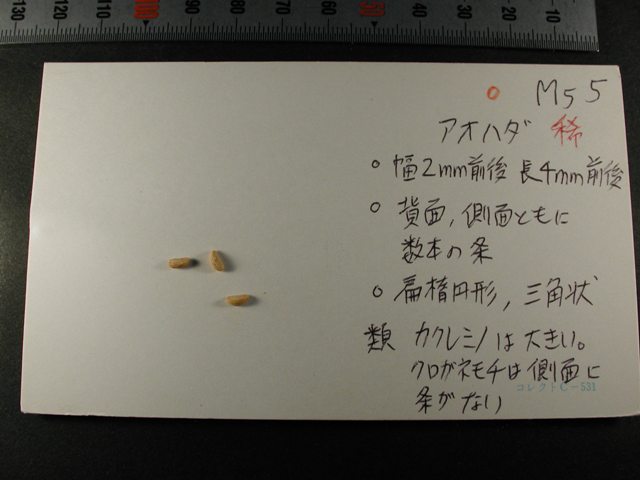 130 120 110 100 90 80 70 60 50 40 30 20 10
○ M55
アオハダ 稀
○ 幅2mm前後 長4mm前後
○ 背面,側面ともに
数本の条
○ 扁楕円形,三角状
類 カクレミノは大きい。
クロガネモチは側面に
コレクト C-531
条がない